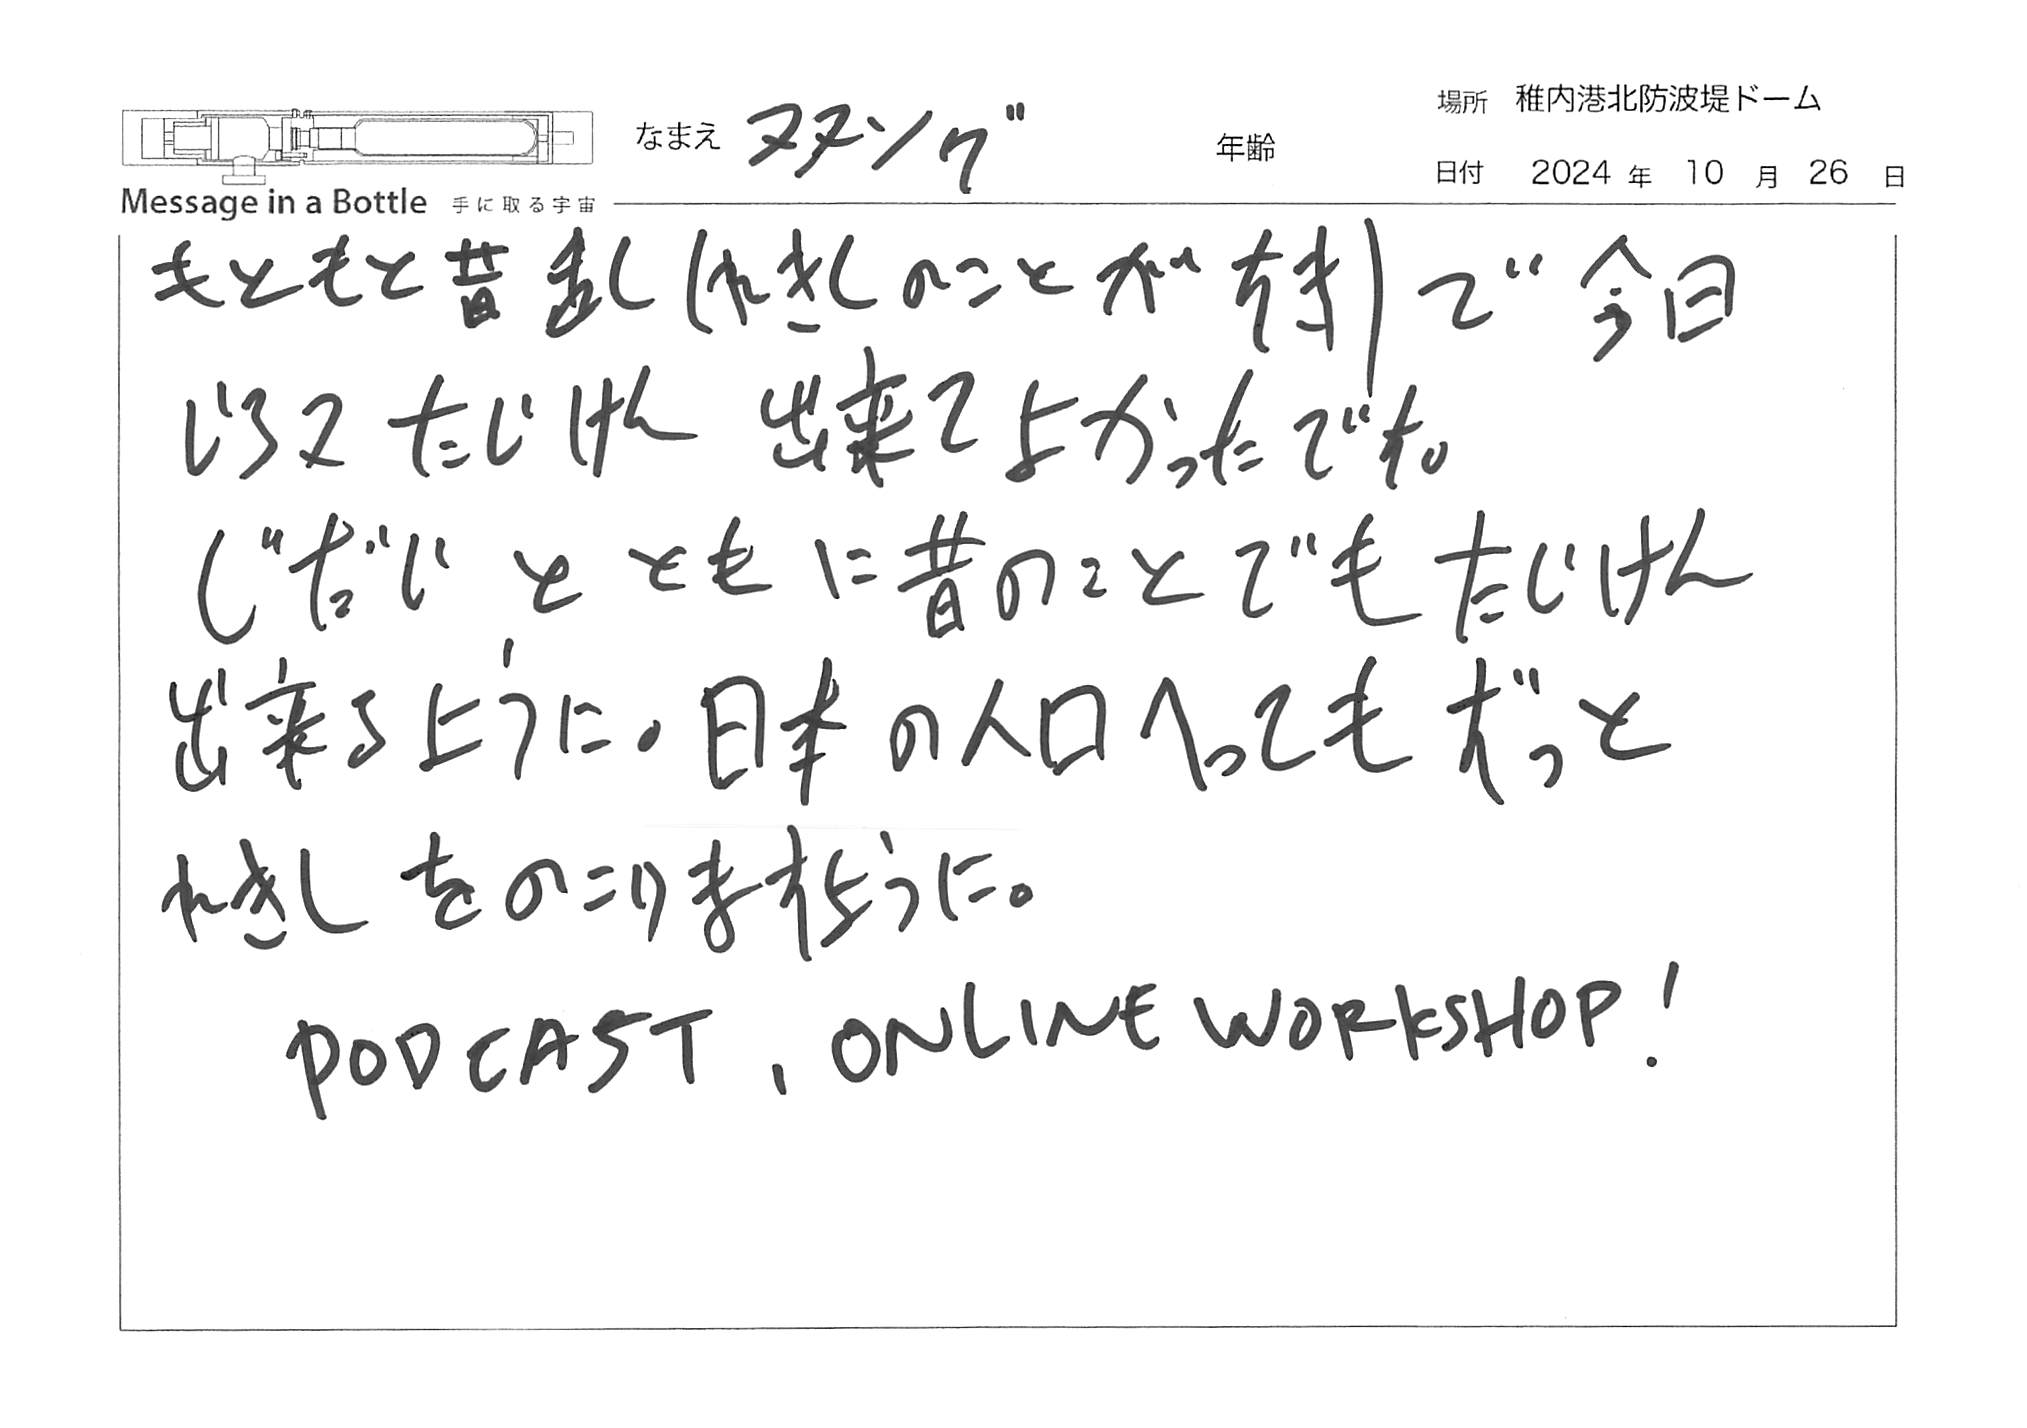 なまえ ヌヌング
年齢
場所 稚内港北防波堤ドーム
日付 2024 年 10 月 26 日
Message in a Bottle 手に取る宇宙
もともと昔 (れきしのことが 好き)で 今日
たじけん 出来てよかったです。
じだじ と ともに昔のことでも たじけん
出来るように。日本の人口へってもずっと
れきし をのこりますように。
PODCAST, ONLINE WORKSHOP!